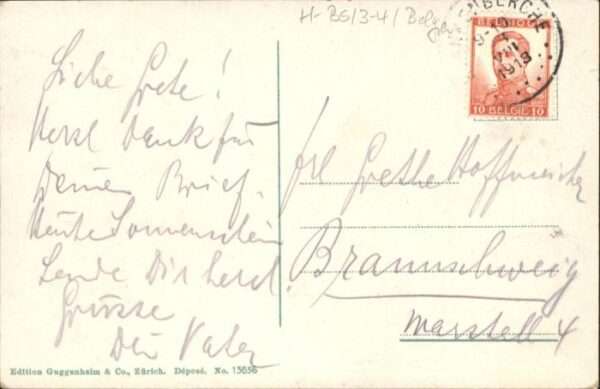 H-BS/3-4/Belg
ENBERGHE
9-10
VIII
1913
BELGIQUE
10 BELGIË 10
Liebe Grete!
Herzl Dank für
Deinen Brief.
Heute Sonnenschein
Sende Dir herzl.
Grüsse
Dein Vater
Frl Grethe
Braunschweig
Marstall 4
Edition Guggenheim & Co., Zürich. Déposé. No. 13656